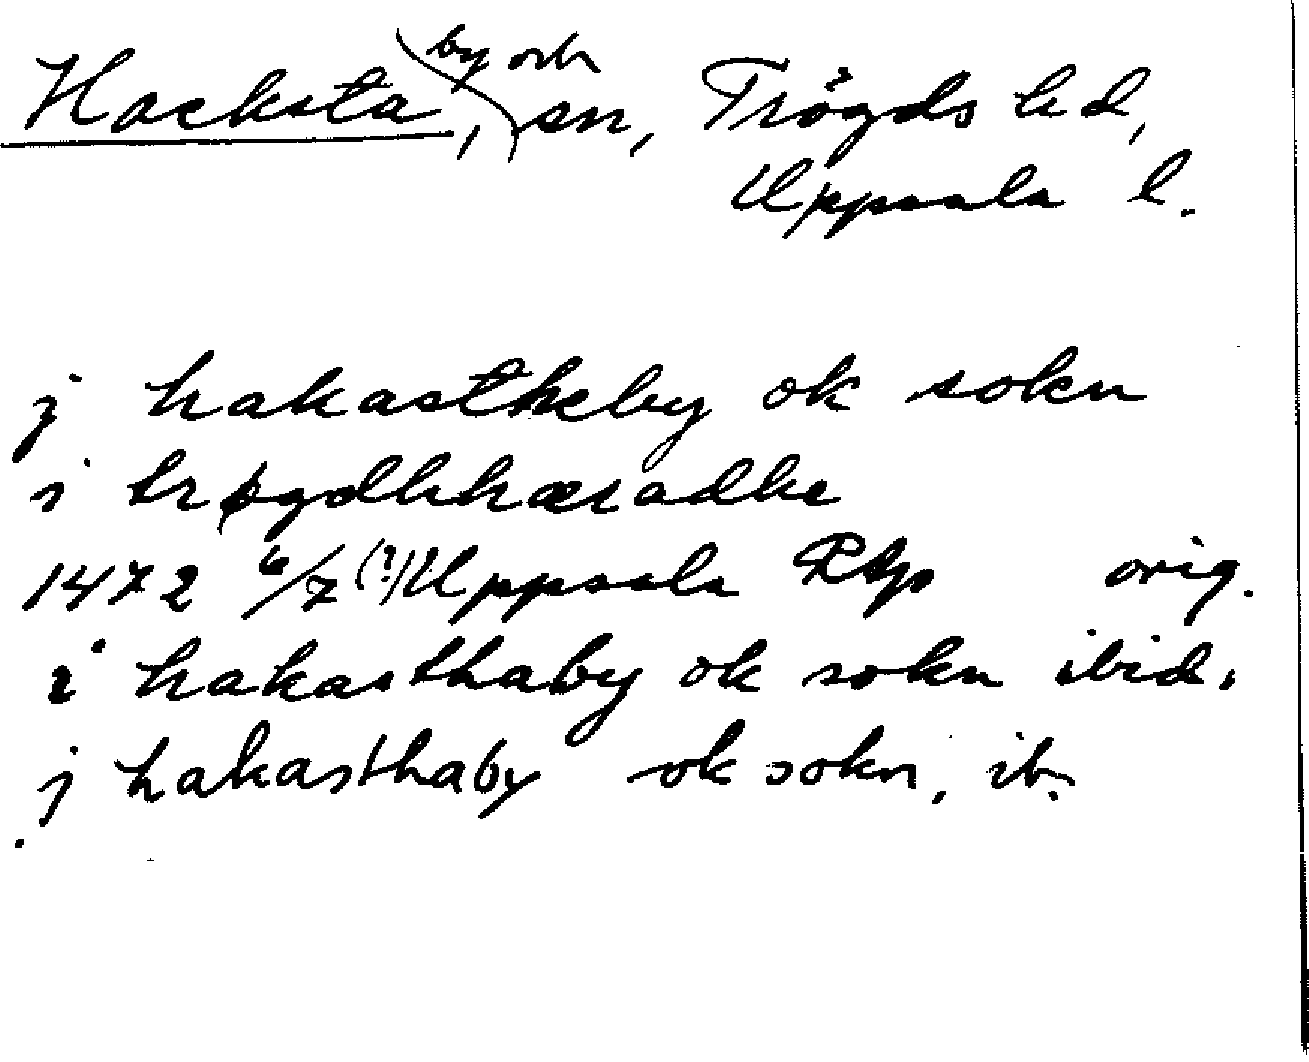 Hacksta, by och sn, Trögds hd,
Uppsala l.
j hakastheby ok sokn
i trøgdhhæradhe
1472 6/7 (?) Uppsala Rap orig.
i hakasthaby ok sokn ibid.
j hakasthaby ok sokn, ib.